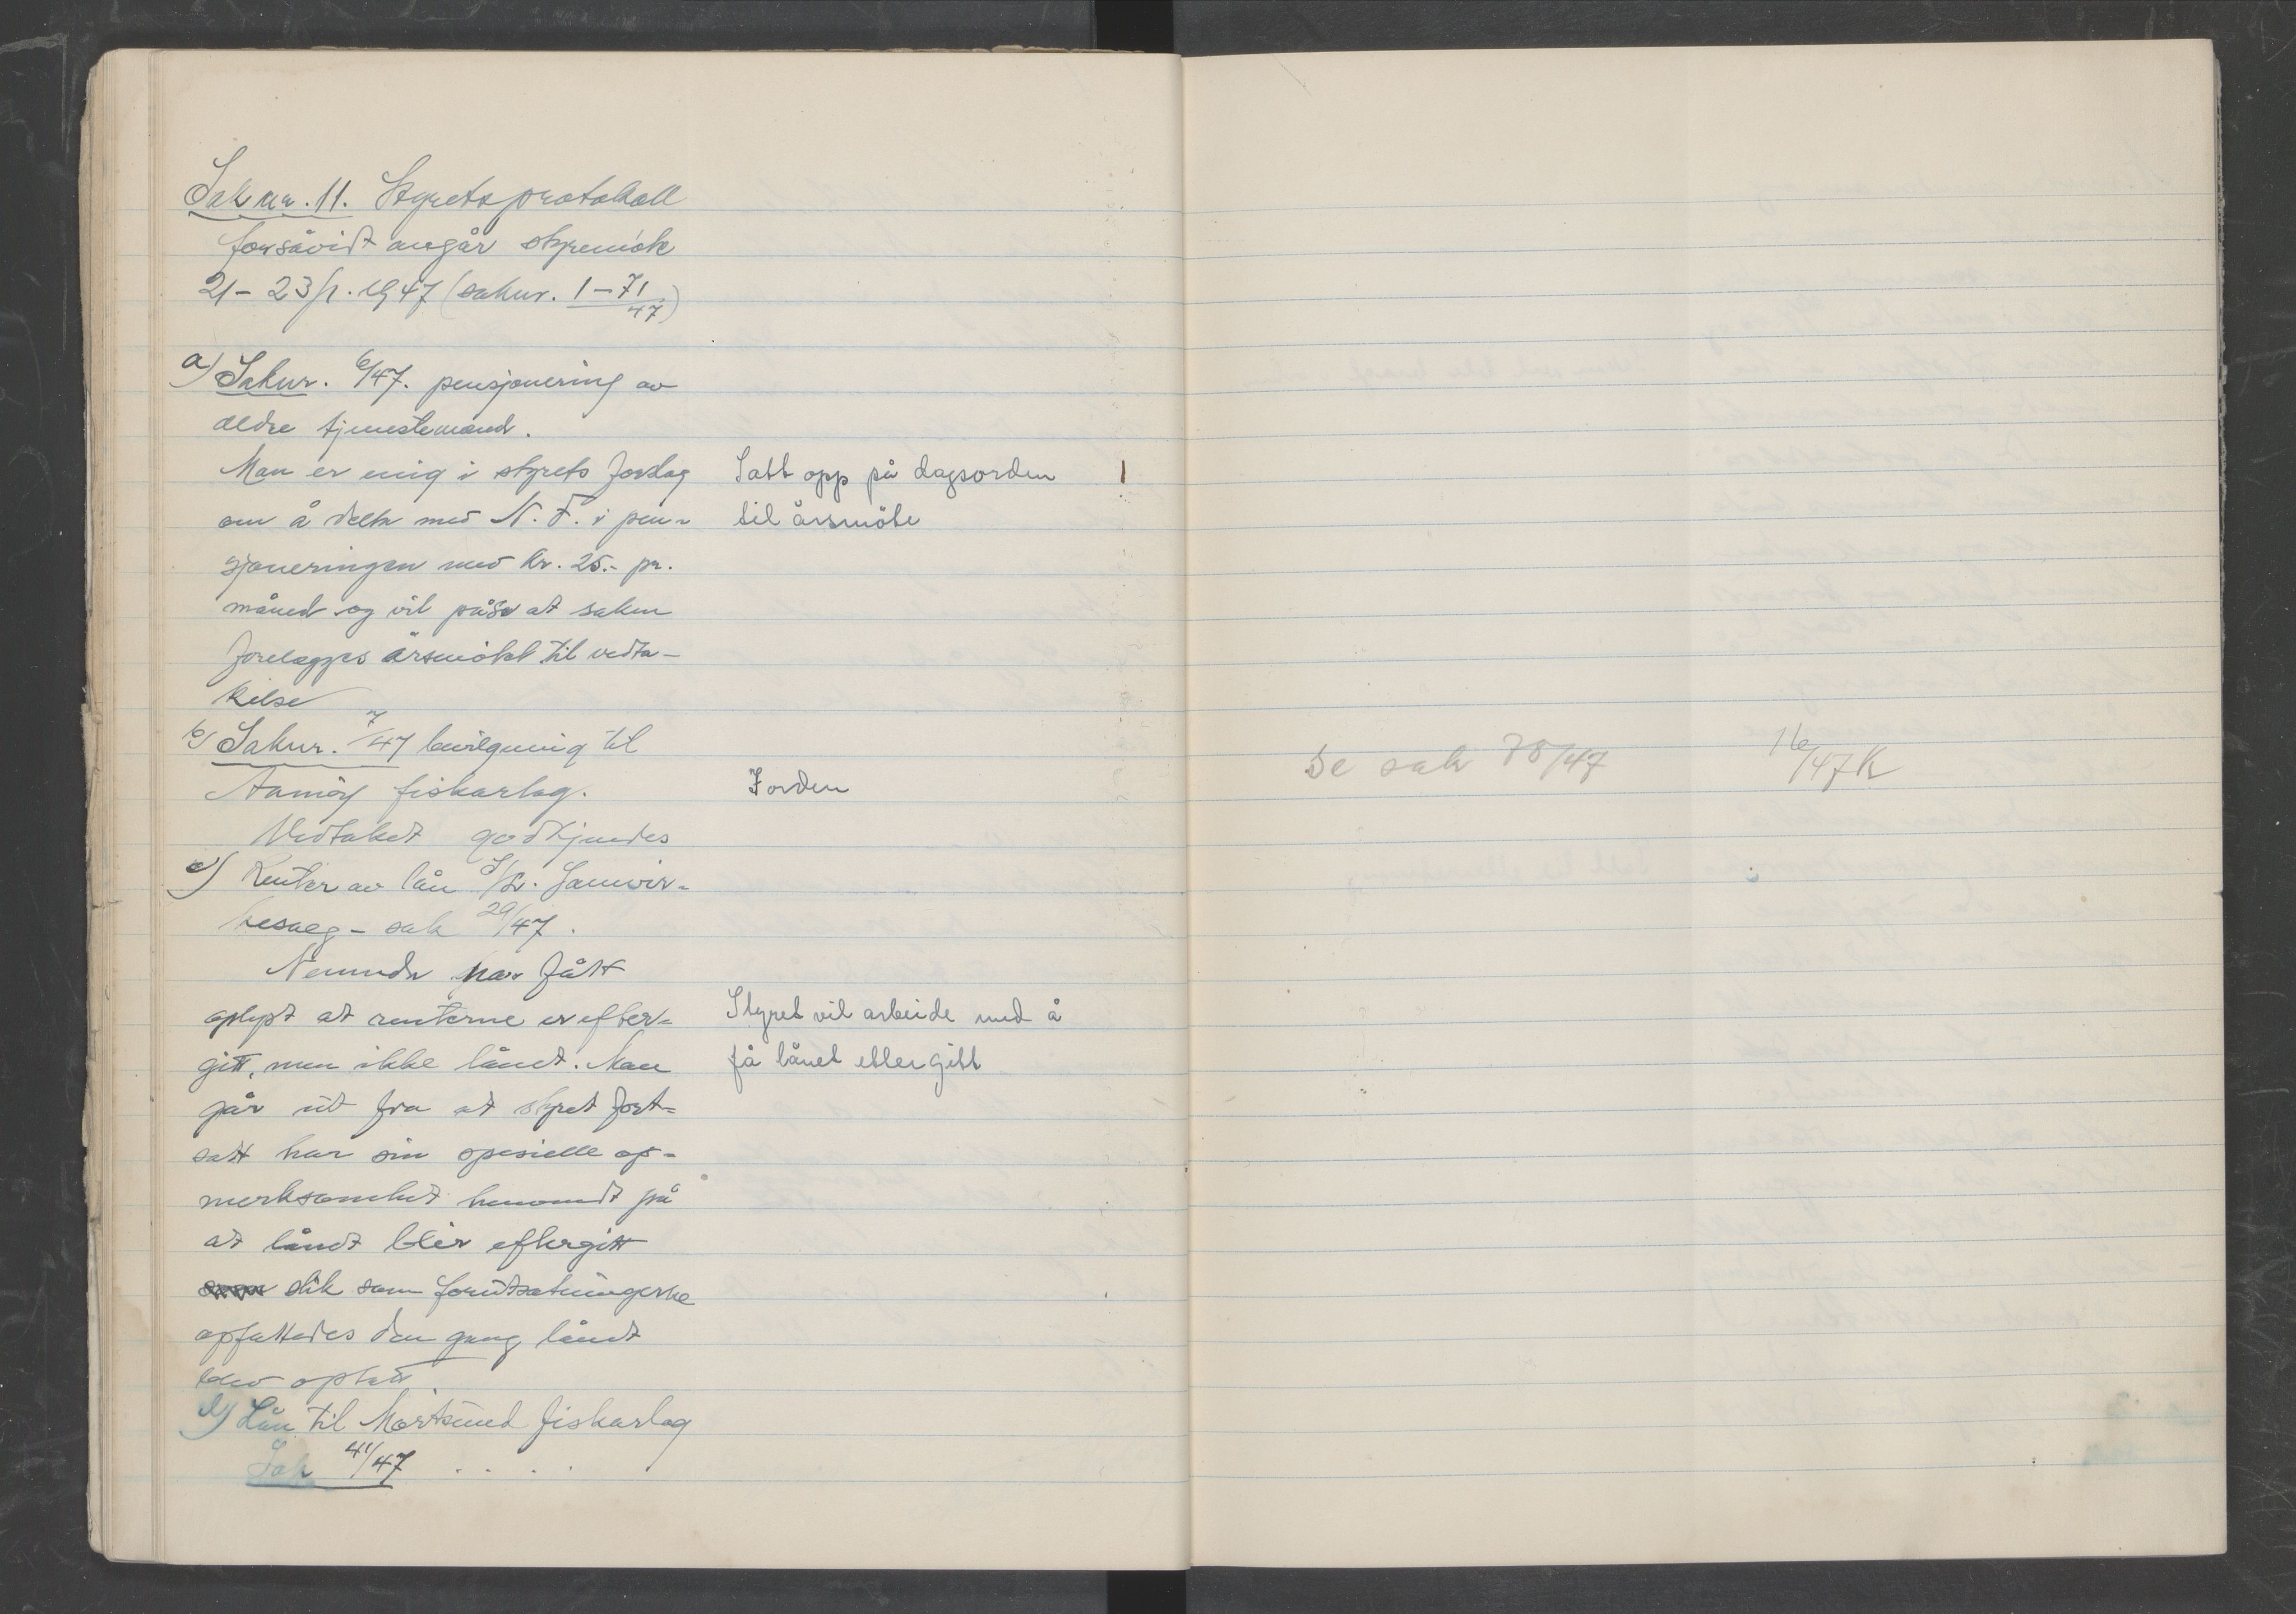 Sak nr. 11. Styrets protokoll
forsåvidt angår styremöte
21 – 23/1. 1947 (saknr. 1 – 71/47)
a) Saknr. 6/47. pensjonering av
eldre tjenestemænd.
Man er enig i styrets forslag
om å delta med N. F. i pen-
sjoneringen med kr. 25.- pr.
måned og vil påse at saken
forelægges årsmötet til vedta-
kelse
b) Saknr. 7/47 bevilgning til
fiskarlag.
Vedtaket godkjendes
c) Renter av lån Samvir-
kesaeg – sak 29/47.
Nemnda har fått
oplyst at renterne er efter-
gitt, men ikke lånet. Man
går ut fra at styret fort-
satt har sin spesielle op-
merksomhet henvendt på
at lånet blir eftergitt
slik som forutsætningerne
opfattedes den gang lånet
blev optatt
d) Lån til Mortsund fiskarlag
Sak 41/47 . . . .
Satt opp på dagsorden
til årsmöte
I orden
Styret vil arbeide med å
få lånet ettergitt
Se sak 78/47
16/47 K